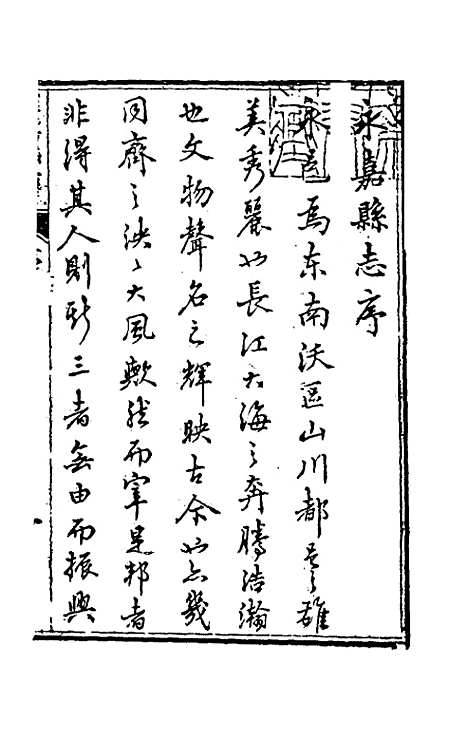 永嘉縣志序
永嘉爲東南沃區山川都邑之雄
美秀麗以長江大海之奔騰浩瀚
也文物聲名之輝映古今以亦幾
同齊之泱泱大風歟然而宰是邦者
非得其人則斯三者無由而振興